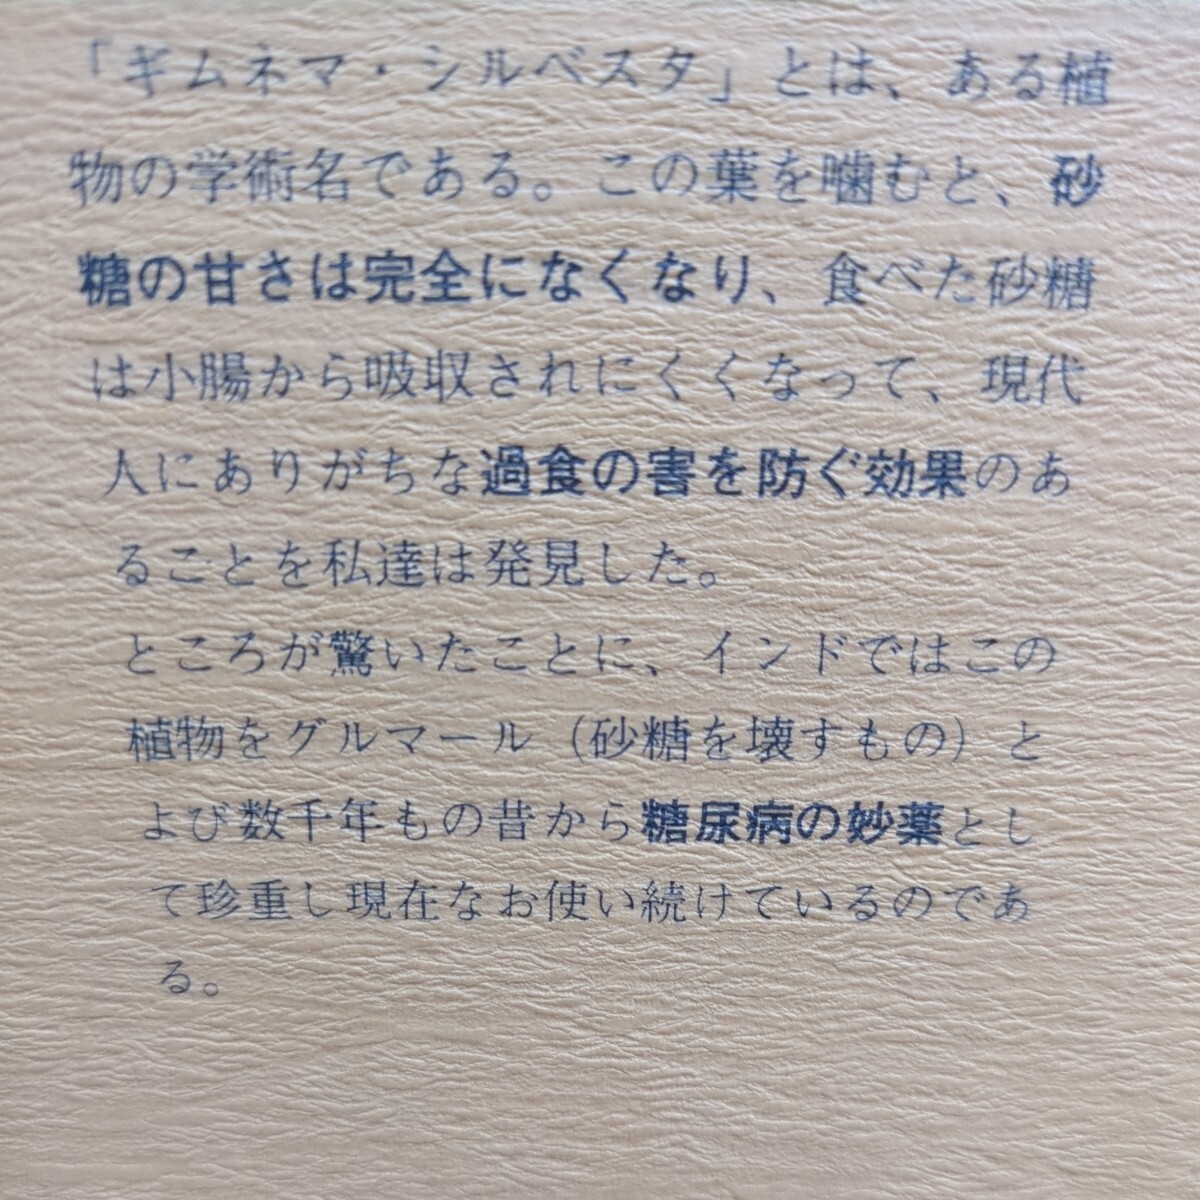 「ギムネマ・シルベスタ」とは、ある植
物の学術名である。この葉を噛むと、砂
糖の甘さは完全になくなり、食べた砂糖
は小腸から吸収されにくくなって、現代
人にありがちな過食の害を防ぐ効果のあ
ることを私達は発見した。
ところが驚いたことに、インドではこの
植物をグルマール（砂糖を壊すもの）と
よび数千年もの昔から糖尿病の妙薬とし
て珍重し現在なお使い続けているのであ
る。